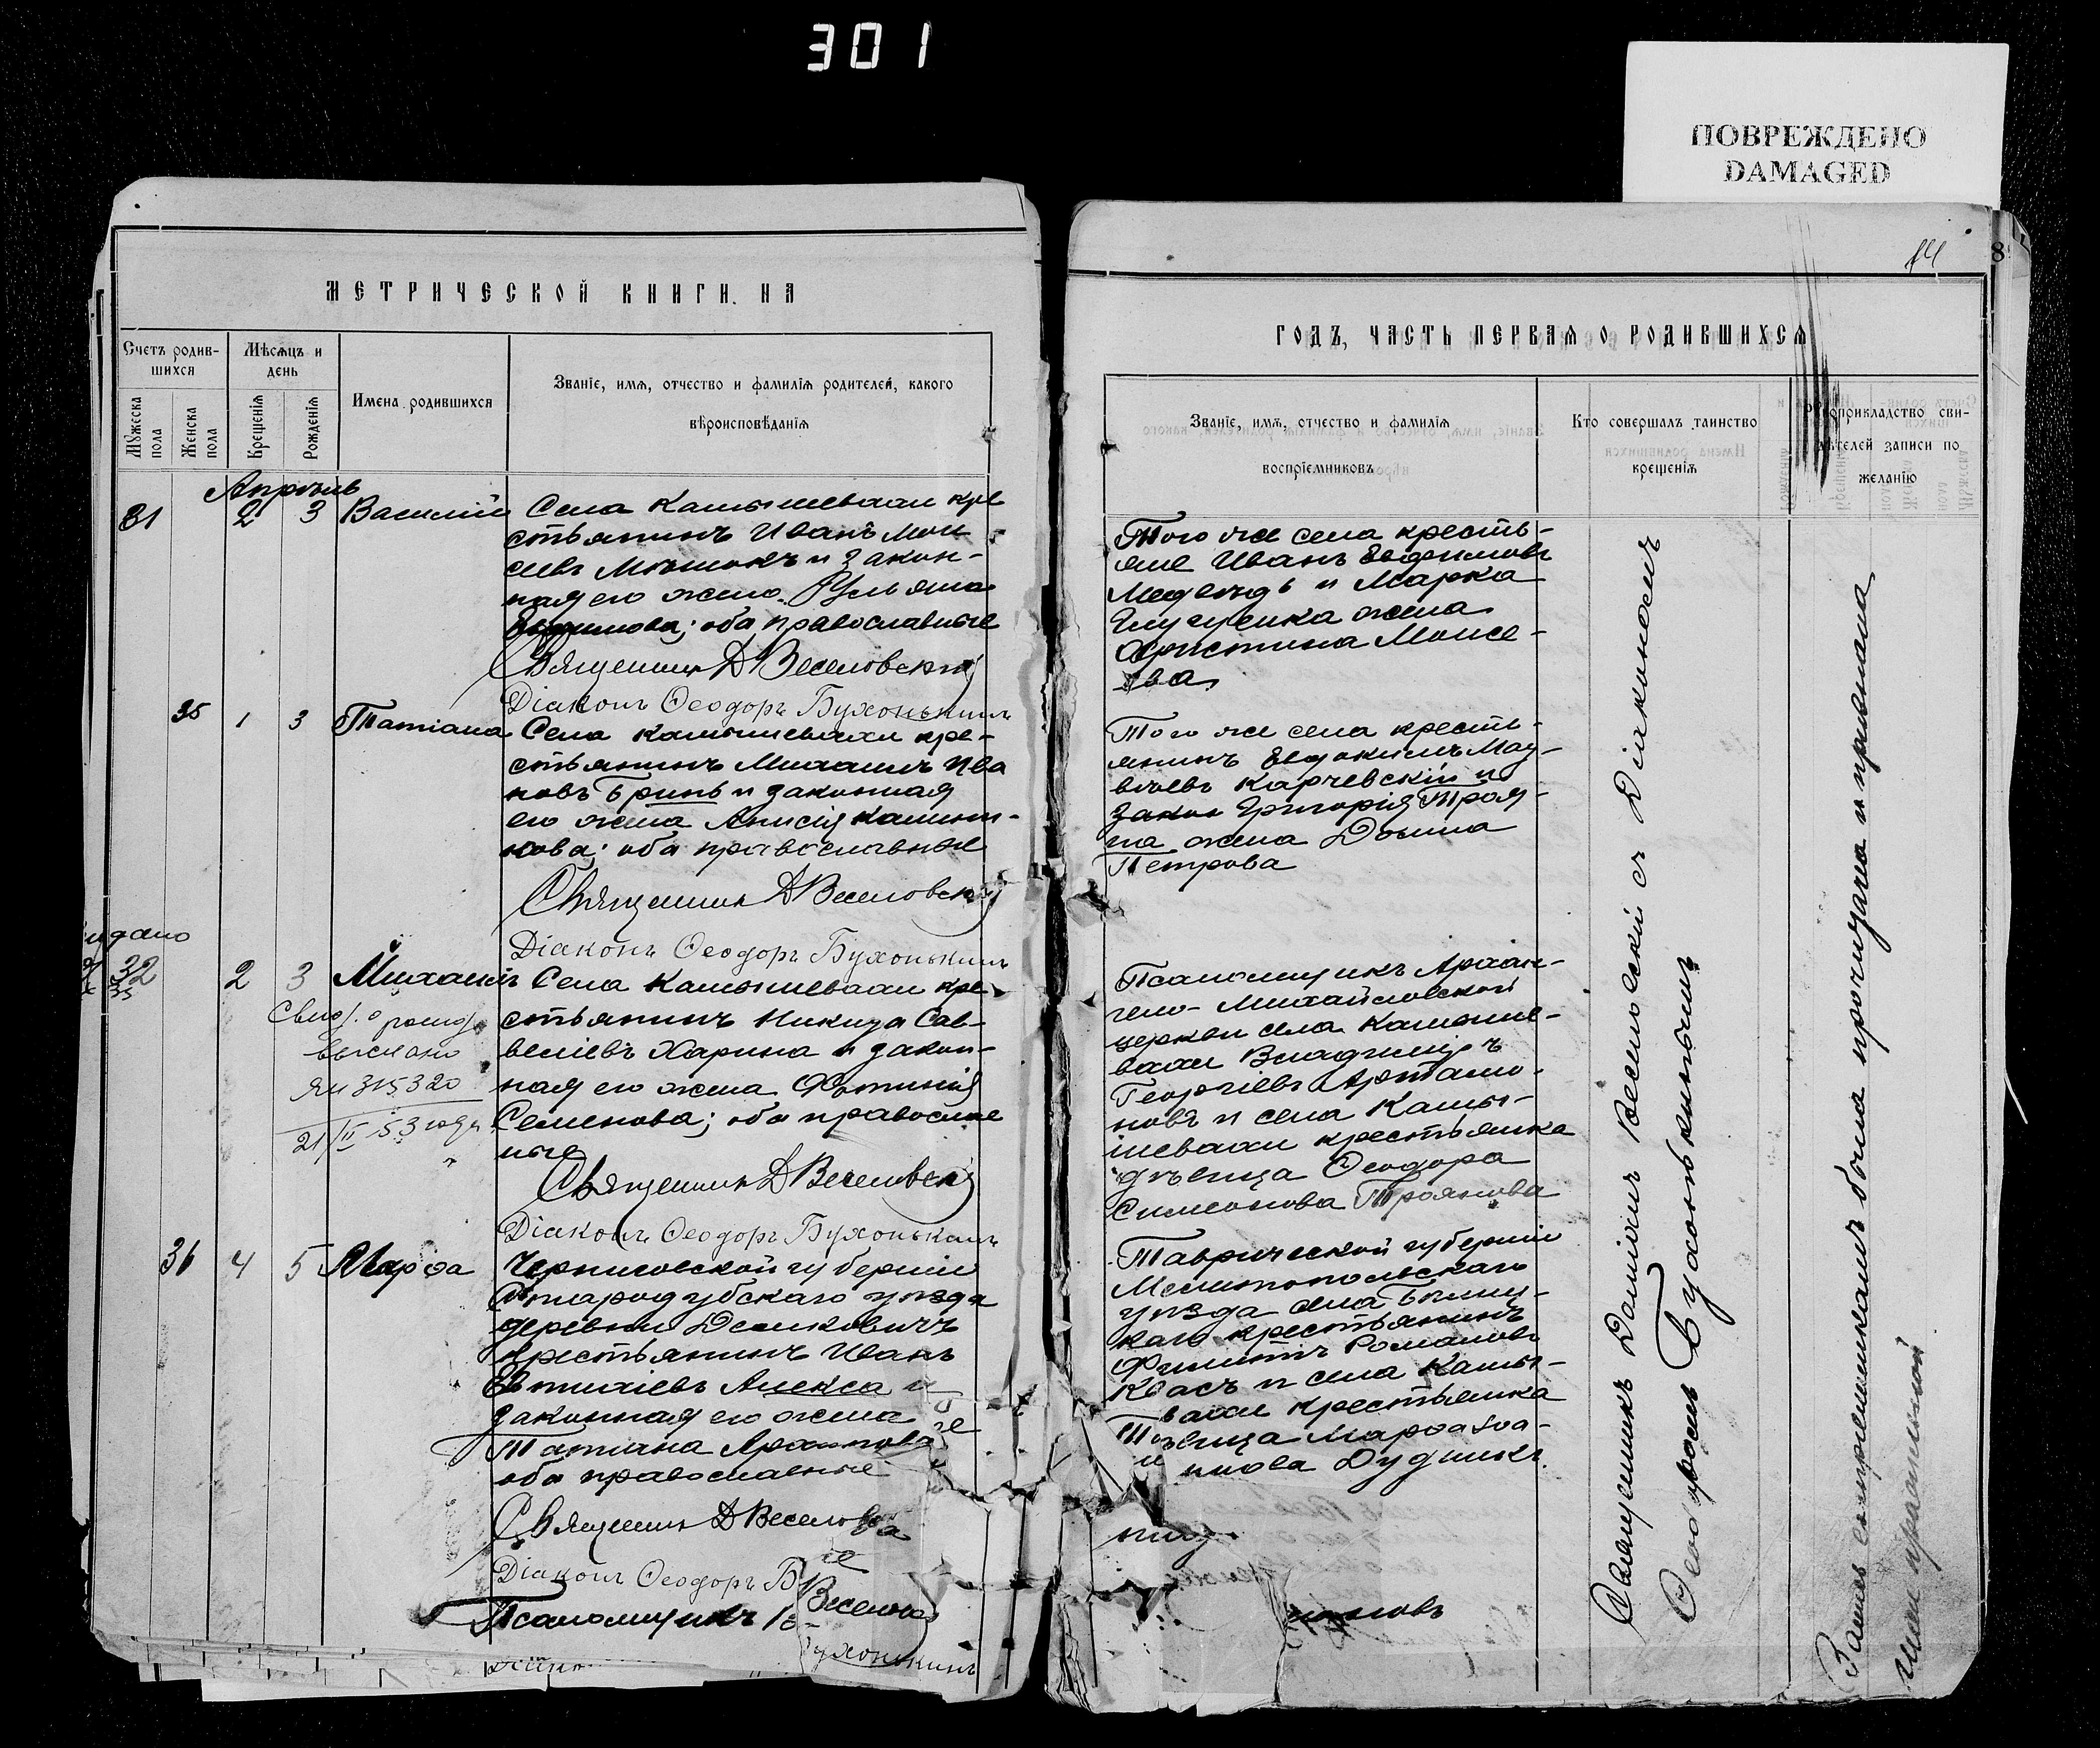 301
ПОВРЕЖДЕНО
DAMAGED
МЕТРИЧЕСКОЙ КНИГИ НА
Счетъ родив-
шихся
Мѣсяцъ и
день
Имена родившихся
Званіе, имя, отчество и фамилія родителей, какого
вѣроисповѣданія
Мужеска пола
Женска пола
Крещенія
Рожденія
Апрѣль
31 2 3 Василій
Села Камышевахи кре
стьянинъ Иванъ Мои
сеевъ и закон-
ная его жена Ульяна
Евфимова; оба православные
Священникъ Д Веселовскій
Діаконъ Ѳеодоръ Бухонькинъ
35 1 3 Татіана
Села Камышевахи кре-
стьянинъ Михаилъ Ива
новъ Бринь и законная
его жена Анисія Калини-
кова; оба православные
Священникъ Д Веселовскій
Діаконъ Ѳеодоръ Бухонькинъ
32 2 3 Михаилъ
Села Камышевахи кре
стьянинъ Никита Сав-
веліевъ Харина и закон-
ная его жена Фотинія
Семенова; оба православ
ные
Свид. о рожд.
выслано
ЯЦ 315320
21/II 53 года
Священникъ Д Веселовскій
Діаконъ Ѳеодоръ Бухонькинъ
36 4 5 Марѳа
Черниговской губерніи
Стародубскаго уѣзда
деревни Демковичъ
крестьянинъ Иванъ
Евтихіевъ Алекса и
законная его жена
Татіана Архипова
оба православные
Священникъ Д Веселов
Діаконъ Ѳеодоръ Б
Псаломщикъ
Веселов
ухонькинъ
14
8
ГОДЪ, ЧАСТЬ ПЕРВАЯ О РОДИВШИХСЯ
Званіе, имя, отчество и фамилія
воспріемниковъ
Кто совершалъ таинство
крещенія
Рукоприкладство сви-
дѣтелей записи по
желанію
Того же села кресть-
яне Иванъ Евфимовъ
Медвѣдь и Марка
жена
Христина Моисе-
ева
Того же села кресть-
янинъ Евдокимъ Мат-
вѣевъ Карчевскій и
Григорія Троя-
на жена Домна
Петрова
Псаломщикъ Архан-
гело-Михайловской
церкви села Камыше-
вахи Владиміръ
Георгіевъ Артамо-
новъ и села Камы-
шевахи крестьянка
дѣвица Ѳеодора
Симеонова Троянова
Таврической губерніи
Мелитопольскаго
уѣзда села
каго крестьянинъ
Филиппъ Романовъ
Квасъ и села Камы-
вахи крестьянка
вица Марѳа
нова Дудникъ.
новъ
Священникъ Даніилъ Веселовскій съ Діакономъ
Ѳеодоромъ Бухонькинымъ
Запись воспріемникамъ была прочитана и признана
ими правильной